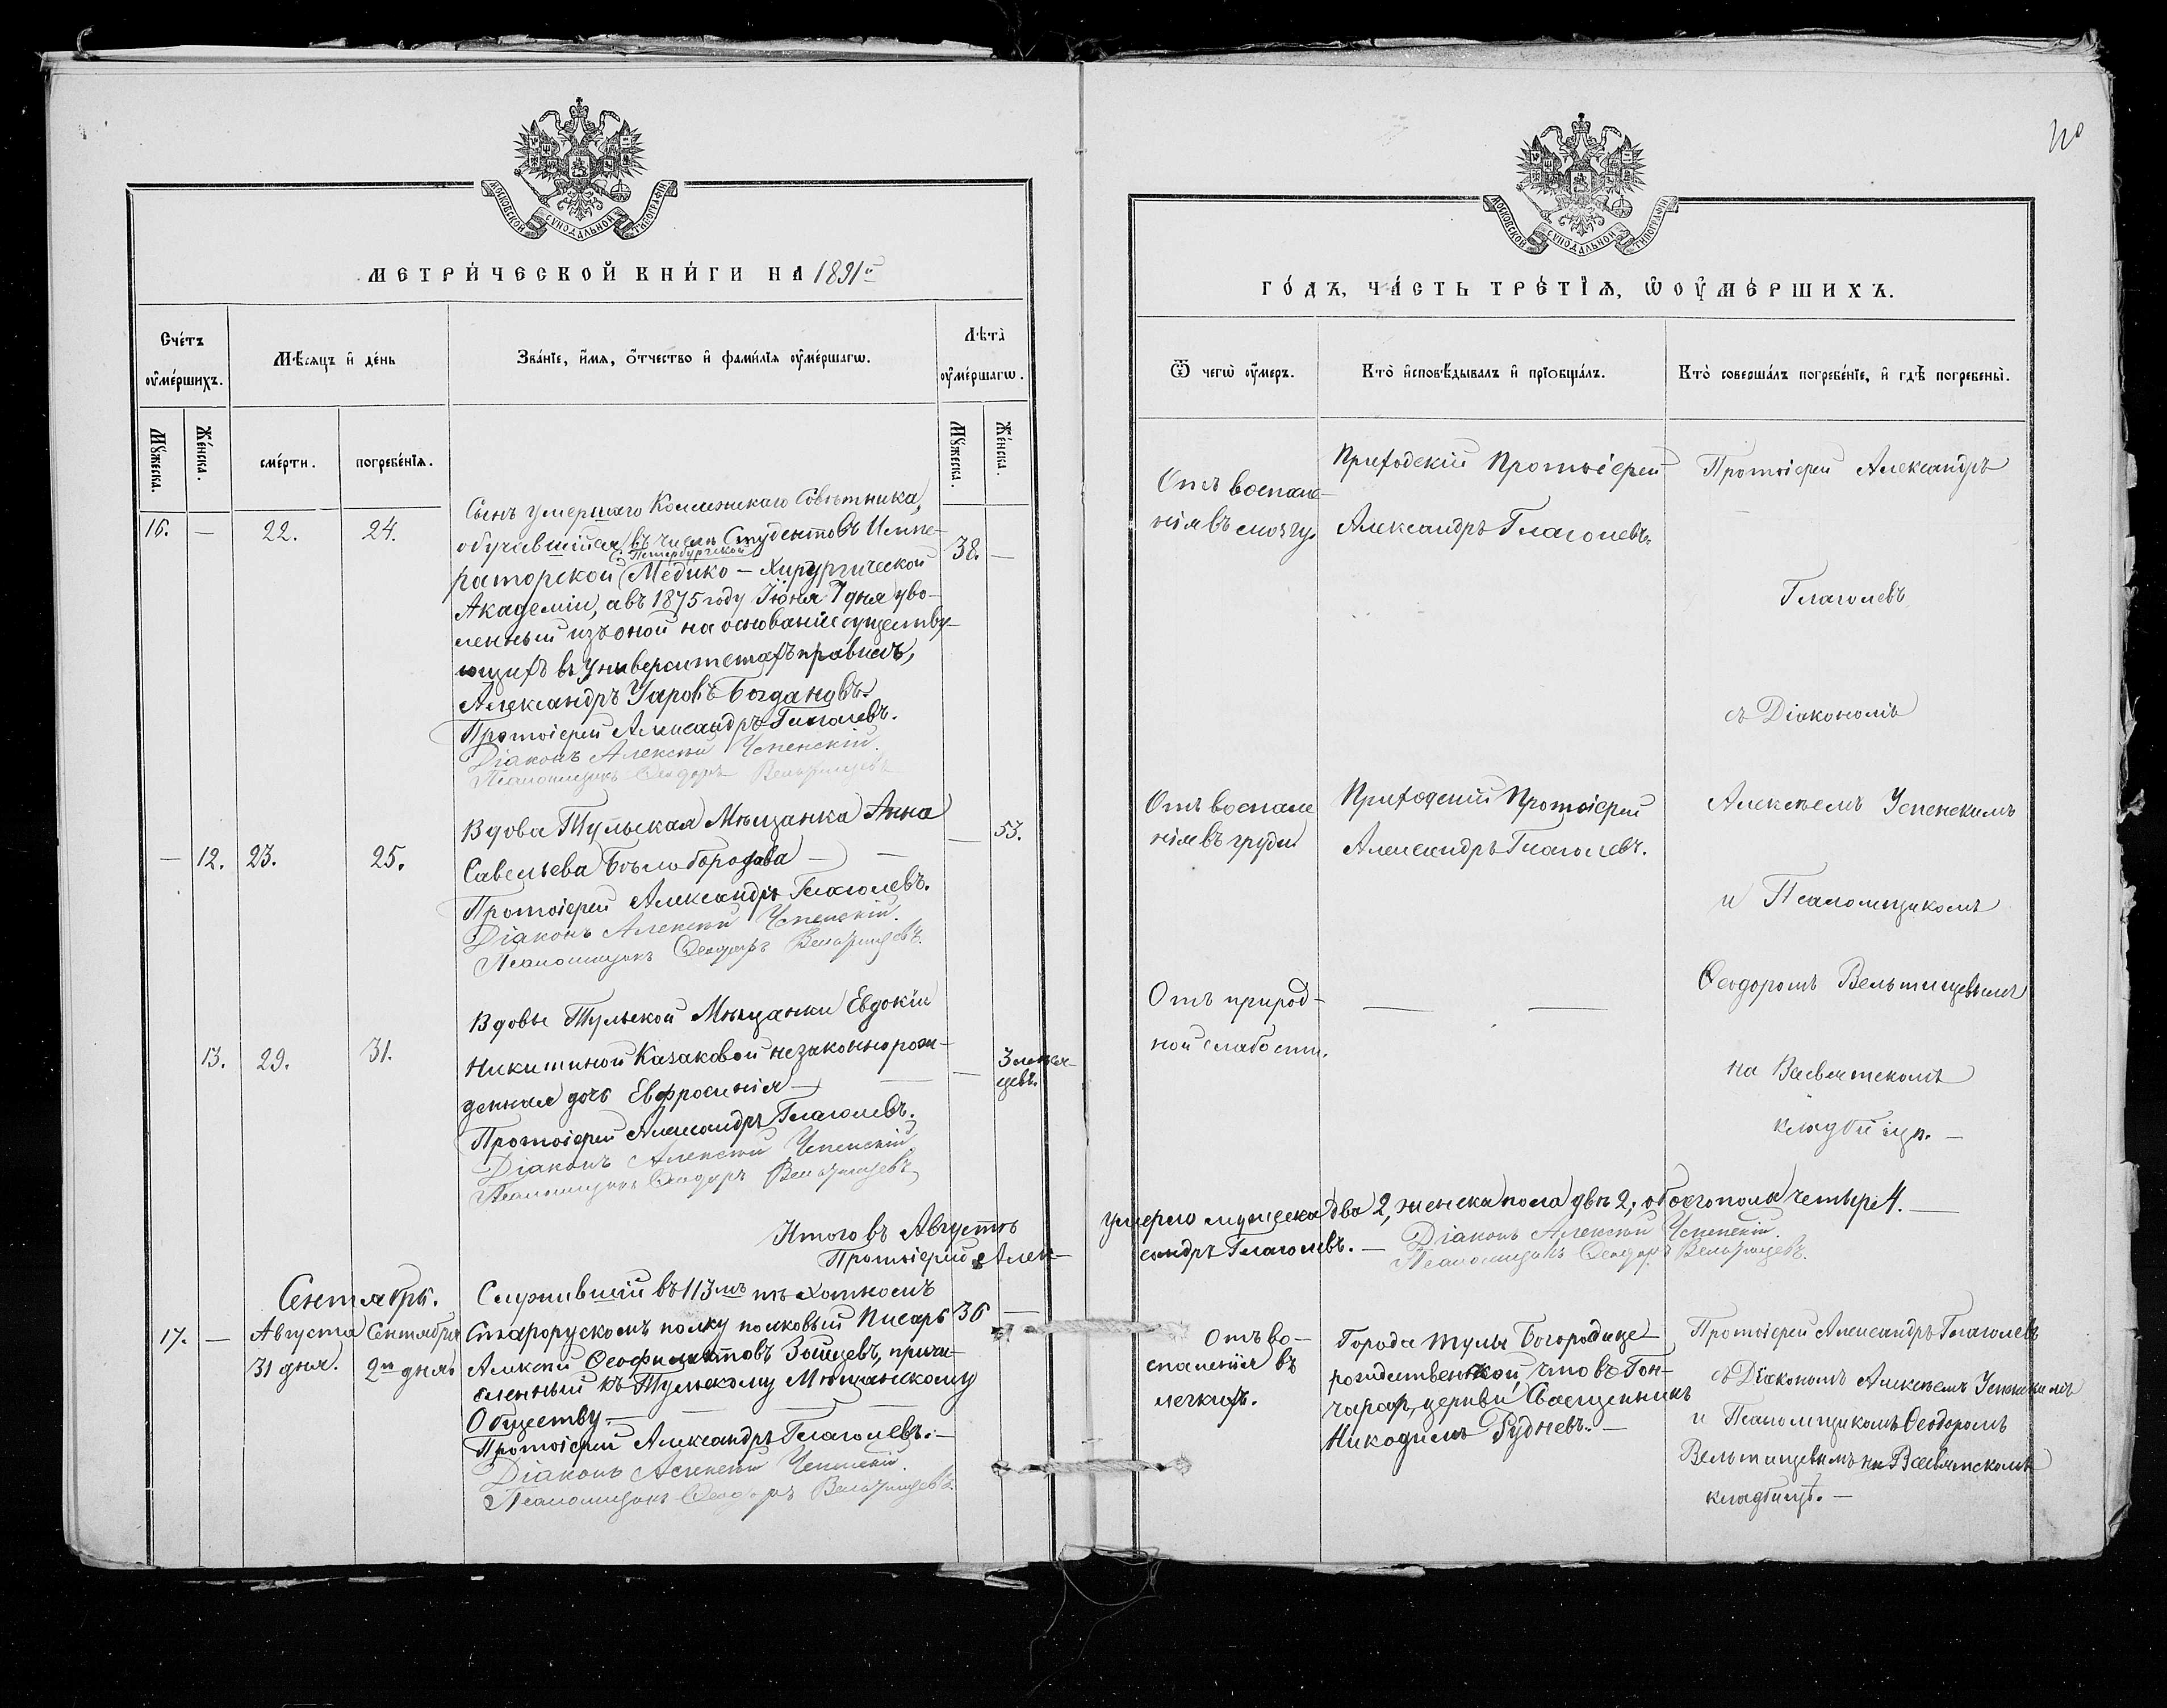 МОСКОВСКОЙ СУНОДАЛЬНОЙ ТИПОГРАФІИ
МЕТРИ́ЧЕСКОЙ КНИ́ГИ НА 1891й
Сче́тъ оу҆ме́ршихъ.
Мѣ́сяцъ и҆ де́нь
Зва́нїе, и҆́мя, о҆́тчество и҆ фами́лїя оу҆ме́ршагѡ.
Лѣ́та оу҆ме́ршагѡ.
Мꙋ́жеска.
Же́нска.
сме́рти.
погребе́нїя.
Мꙋ́жеска.
Же́нска.
16. — 22. 24.
Сынъ умершаго Коллежскаго Совѣтника,
обучавшійся въ числѣ Студентовъ Импе-
С. Петербургской
раторской Медико-Хирургической
38. —
Академіи, а въ 1875 году Іюня 7 дня уво-
ленный изъ оной на основаніи существу-
ющихъ въ Университетахъ правилъ,
Александръ Уаровъ Богдановъ.
Протоіерей Александръ Глаголевъ.
Діаконъ Алексѣй Успенскій.
Псаломщикъ Ѳеодоръ Вельтищевъ
— 12. 23. 25.
Вдова Тульская Мѣщанка Анна
Савельева Бѣлобородова —
— 53.
Протоіерей Александръ Глаголевъ.
Діаконъ Алексѣй Успенскій.
Псаломщикъ Ѳеодоръ Вельтищевъ.
13. 29. 31.
Вдовы Тульской Мѣщанки Евдокіи
Никитиной Казаковой незаконнорож-
денная дочь Евфросинія —
— 3 мѣся-
цевъ.
Протоіерей Александръ Глаголевъ.
Діаконъ Алексѣй Успенскій
Псаломщикъ Ѳеодоръ Вельтищевъ
Итого въ Августѣ
Протоіерей Алек-
Сентябрь.
17. — Августа 31 дня. Сентября 2го дня.
Служившій въ 113мъ пѣхотномъ
Старорускомъ полку полковый Писарь
36 —
Алексѣй Ѳеофилактовъ Зайцевъ, причи-
сленный къ Тульскому Мѣщанскому
Обществу. —
Протоіерей Александръ Глаголевъ. —
Діаконъ Алексѣй Успенскій.
Псаломщикъ Ѳеодоръ Вельтищевъ.
МОСКОВСКОЙ СУНОДАЛЬНОЙ ТИПОГРАФІИ
ГО́ДЪ, ЧА́СТЬ ТРЕ́ТЇѦ, Ѡ҆ ОУ҆МЕ́РШИХЪ.
Ѿ чегѡ̀ оу҆́меръ.
Кто̀ и҆сповѣ́дывалъ и҆ прїобща́лъ.
Кто̀ соверша́лъ погребе́нїе, и҆ гдѣ̀ погребены̀.
Отъ воспале-
нія въ мозгу.
Приходскій Протоіерей
Александръ Глаголевъ.
Протоіерей Александръ
Глаголевъ
съ Діакономъ
Отъ воспале
нія въ груди
Приходскій Протоіерей
Александръ Глаголевъ.
Алексѣемъ Успенскимъ
и Псаломщикомъ
Отъ природ-
ной слабости.
— —
Ѳеодоромъ Вельтищевымъ
на Всѣвятскомъ
кладбищѣ. —
умерло мужеска два 2, женска пола двѣ 2; обоего пола четыре 4. —
сандръ Глаголевъ. — Діаконъ Алексѣй Успенскій.
Псаломщикъ Ѳеодоръ Вельтищевъ.
Отъ во-
спаленія въ
легкихъ.
Города Тулы Богородице-
рождественской, что въ Гон-
чарахъ, церкви Священникъ
Никодимъ Рудневъ. —
Протоіерей Александръ Глаголевъ
съ Діакономъ Алексѣемъ Успенскимъ
и Псаломщикомъ Ѳеодоромъ
Вельтищевымъ на Всѣвятскомъ
кладбищѣ. —